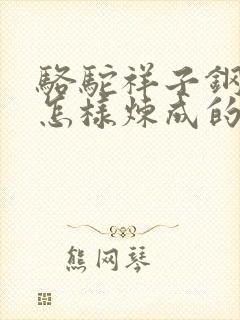 駱駝祥子鋼
怎樣煉成的
熊网琴